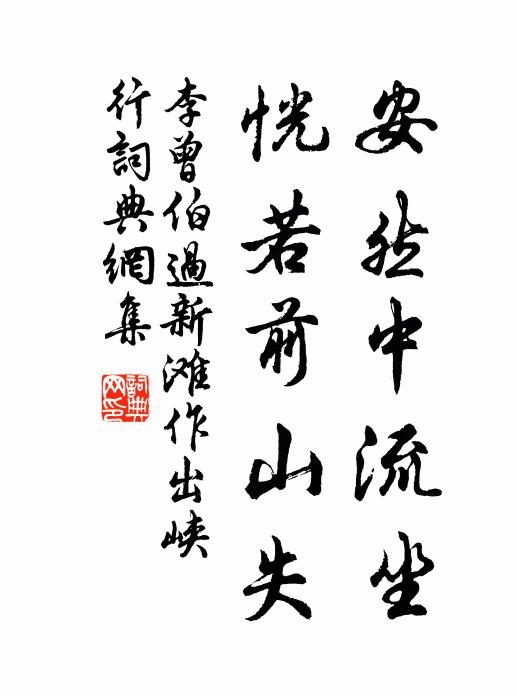 安然中流坐
恍若前山失
李曾伯過新滩作出峽
行詞典網集
詞典網印